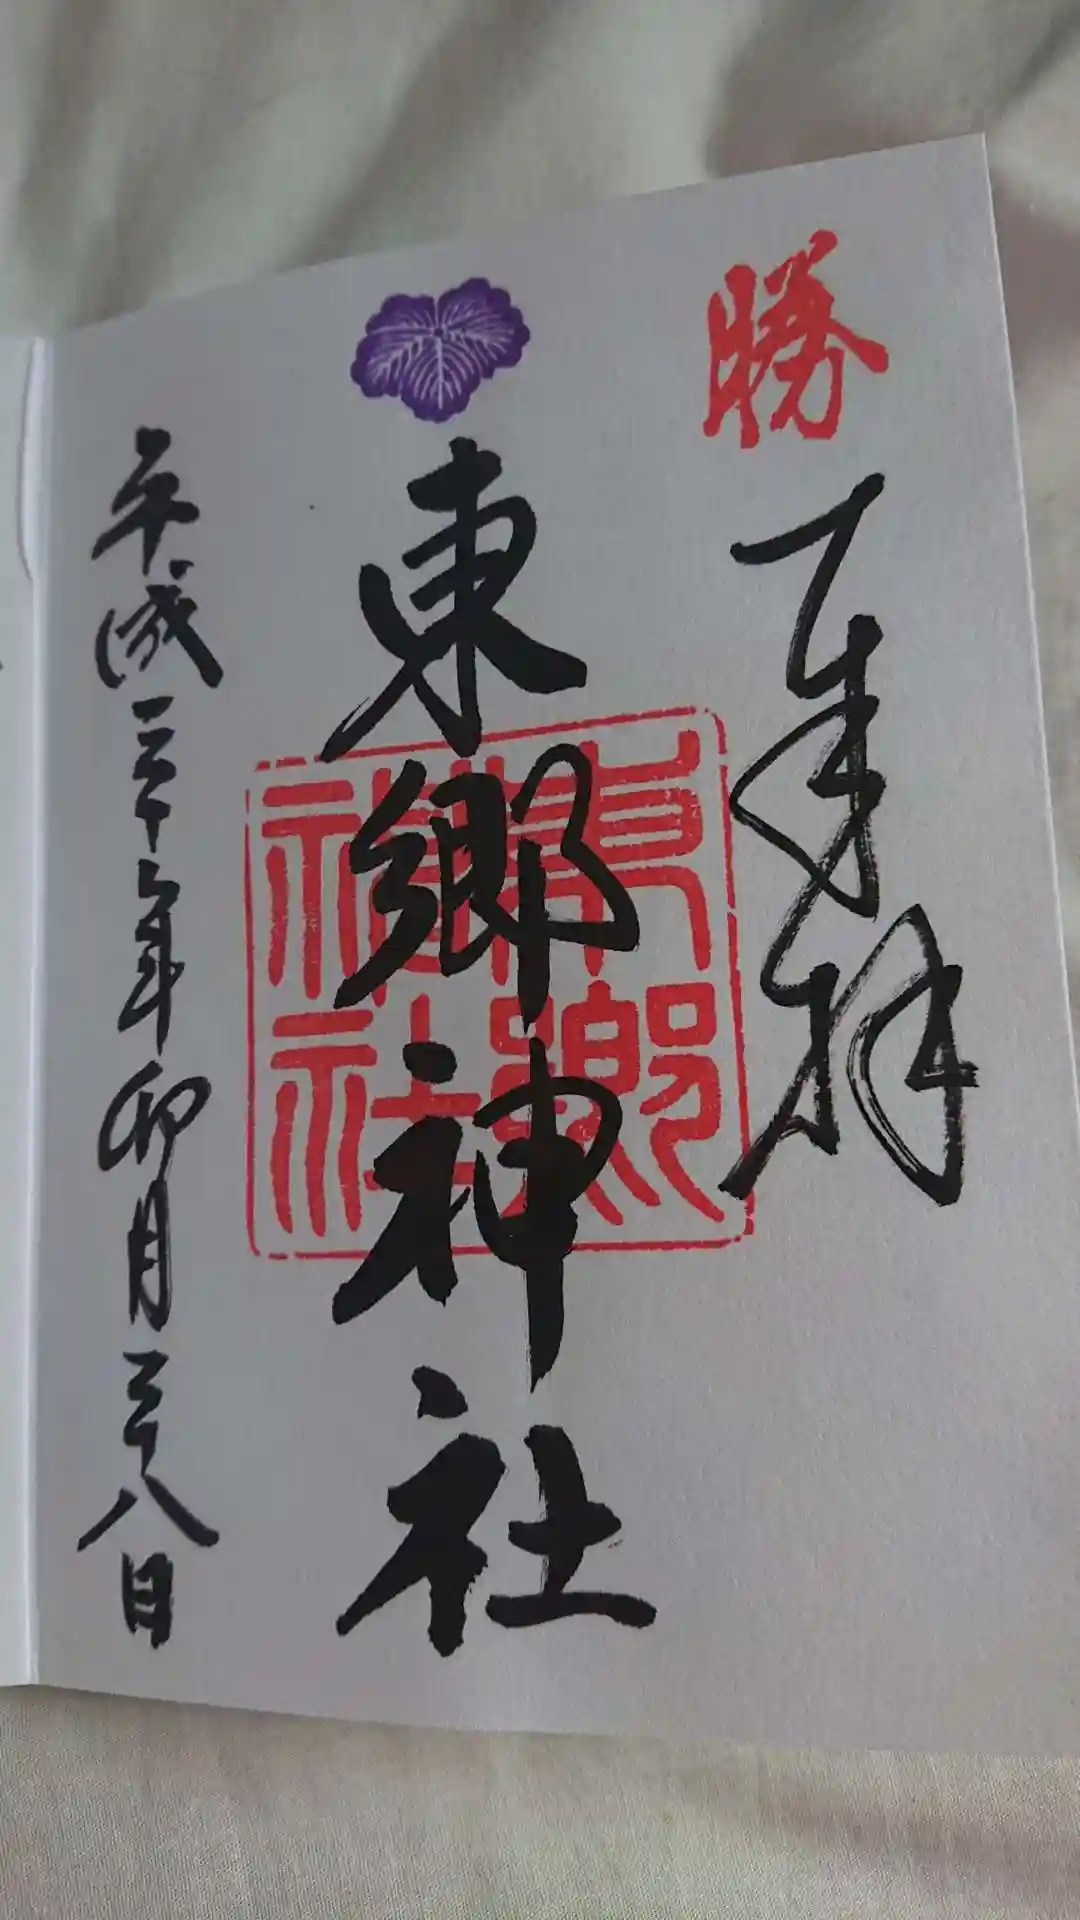 勝
奉拝
東郷神社
東郷神社
平成二十六年卯月二十八日